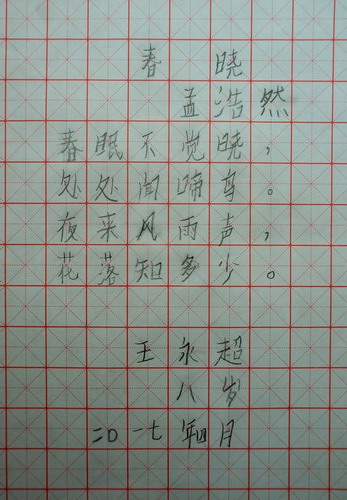 春晓
孟浩然
春眠不觉晓，
处处闻啼鸟。
夜来风雨声，
花落知多少。
王永超
八岁
二〇一七年四月